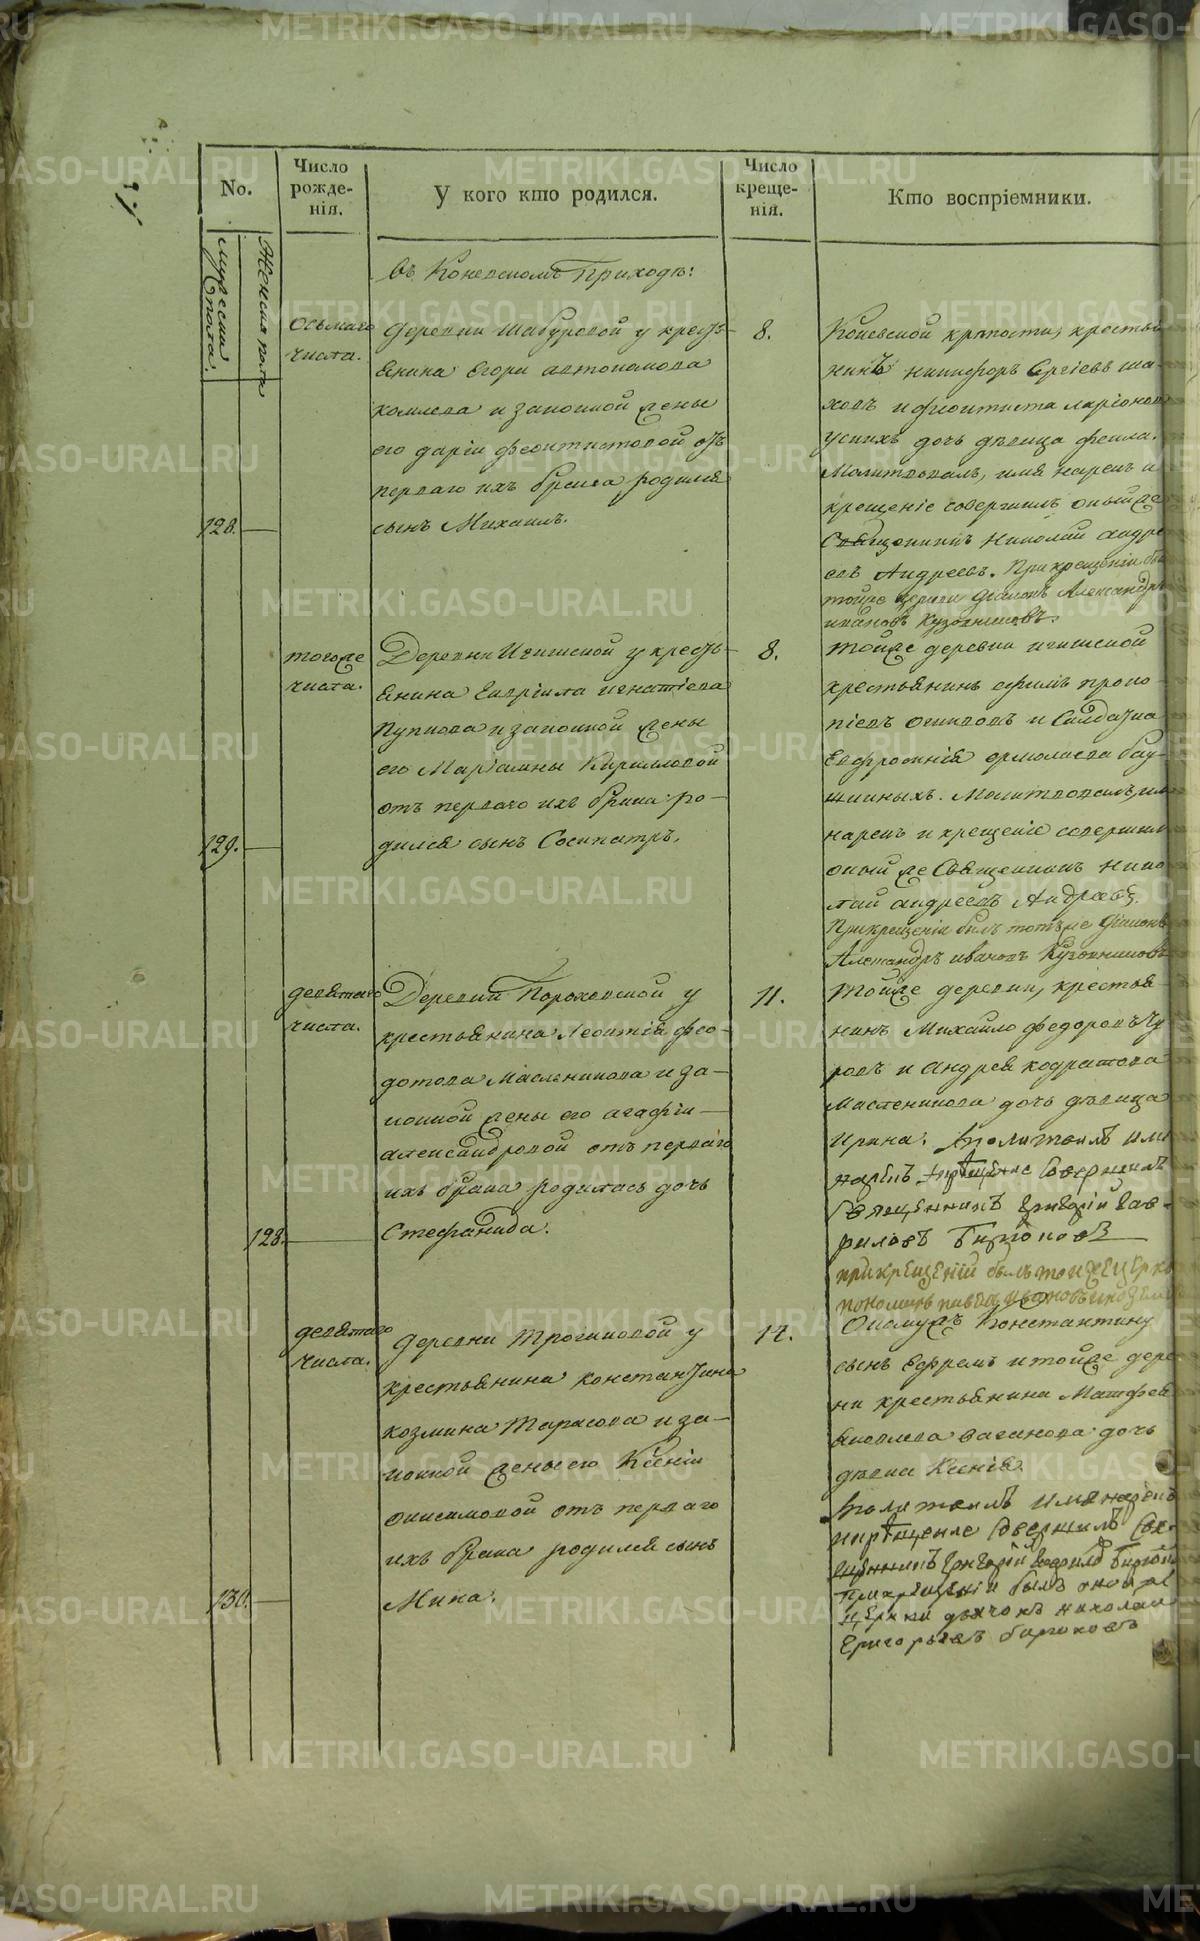 METRIKI.GASO-URAL.RU
No.
Число рожде-нія.
У кого кто родился.
Число креще-нія.
Кто воспріемники.
мужеска пола.
Женска пола
въ Коневскомъ Приходѣ:
осьмаго
числа.
деревни Шабуровой у кресть-
янина Егора автономова
комлева и законной жены
его даріи феоктистовой отъ
перваго ихъ брака родился
сынъ Михаилъ.
128.
8.
Коневской крѣпости, крестья
нинъ никифоръ Сргіевъ ша-
ховъ и феоктиста ларіонов
дочь дѣвица фекла.
Молитвовалъ, имя нарекъ и
крещеніе совершилъ оный же
Священникъ Николай андре
евъ Андреевъ. При крещеніи был
тойже церкви діаконъ Александръ
ивановъ Кузовниковъ.
тогоже
числа.
Деревни Ичинской у кресть-
янина Гавріила игнатіева
Пупкова и законной жены
его Маріамны Кирилловой
отъ перваго ихъ брака ро-
дился сынъ Сосипатръ.
129.
8.
тойже деревни ичинской
крестьянинъ ефимъ проко-
піевъ и Салдатка
Евфросинія ермолаева
Молитвовалъ, имя
нарекъ и крещеніе совершил
оный же Священникъ Нико
лай андреевъ Андреевъ.
При крещеніи былъ тотъже діаконъ
Александръ ивановъ Кузовниковъ
девятаго
числа.
Деревни Пороховской у
крестьянина Леонтія фео-
дотова Масленикова и за-
конной жены его агафіи
александровой отъ перваго
ихъ брака родилась дочь
Стефанида.
128.
11.
тойже деревни, крестья-
нинъ Михайло федоровъ Чу
ровъ и Андрея кодратова
Масленикова дочь дѣвица
Ирина. Молитвилъ имя
нарекъ и крѣщение Совершилъ
Священникъ Григорій Гав-
риловъ Бирюковъ
При крещеніи былъ тойже церкв
пономарь павелъ ивановъ
девятаго
числа.
деревни Трошковой у
крестьянина константина
козмина Тарасова и за-
конной жены его Ксеніи
онисимовой отъ перваго
ихъ брака родился сынъ
Мина.
130.
14.
Константину
сынъ Ефремъ и тойже дере
ни крестьянина Матфея
яковлева ваганова дочь
дѣвка Ксенія.
Молитвилъ имя нарекъ
и крѣщение Совершилъ Свя-
щенникъ Григорій Гаврилов Бирюков
При крещеніи былъ оной же
церкви дьячокъ николай
Григорьевъ бирюковъ